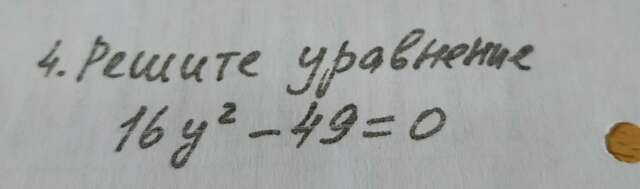 4. Решите уравнение
16y² - 49 = 0